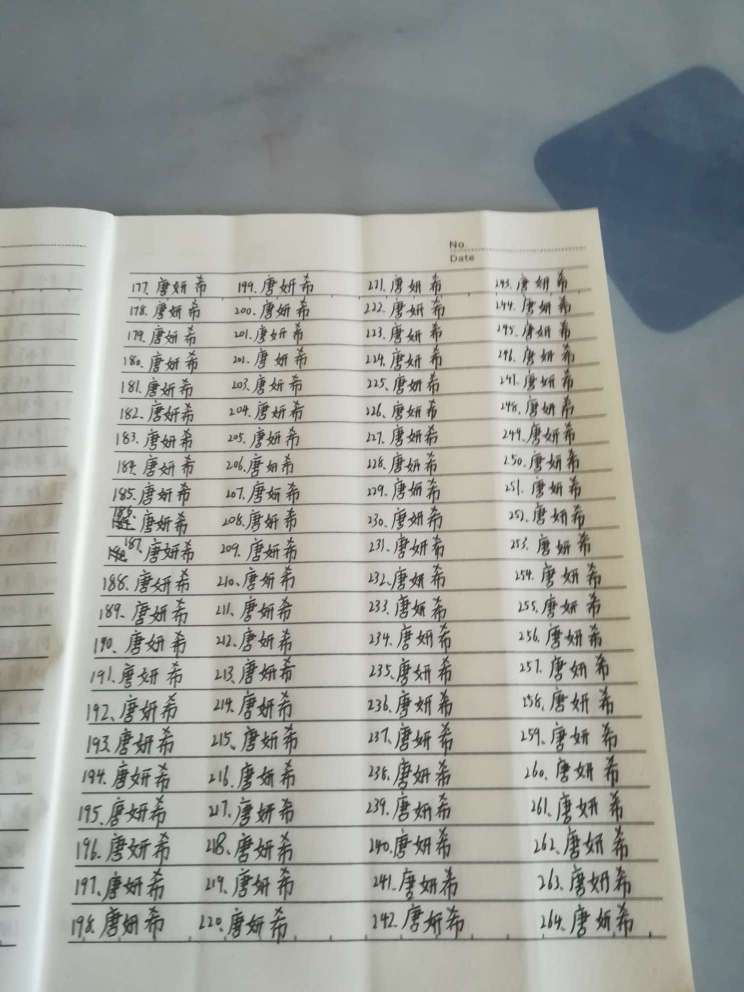 No.
Date
177. 唐妍希 199. 唐妍希 221. 唐妍希 243. 唐妍希
178. 唐妍希 200. 唐妍希 222. 唐妍希 244. 唐妍希
179. 唐妍希 201. 唐妍希 223. 唐妍希 245. 唐妍希
180. 唐妍希 202. 唐妍希 224. 唐妍希 246. 唐妍希
181. 唐妍希 203. 唐妍希 225. 唐妍希 247. 唐妍希
182. 唐妍希 204. 唐妍希 226. 唐妍希 248. 唐妍希
183. 唐妍希 205. 唐妍希 227. 唐妍希 249. 唐妍希
184. 唐妍希 206. 唐妍希 228. 唐妍希 250. 唐妍希
185. 唐妍希 207. 唐妍希 229. 唐妍希 251. 唐妍希
186. 唐妍希 208. 唐妍希 230. 唐妍希 252. 唐妍希
187. 唐妍希 209. 唐妍希 231. 唐妍希 253. 唐妍希
188. 唐妍希 210. 唐妍希 232. 唐妍希 254. 唐妍希
189. 唐妍希 211. 唐妍希 233. 唐妍希 255. 唐妍希
190. 唐妍希 212. 唐妍希 234. 唐妍希 256. 唐妍希
191. 唐妍希 213. 唐妍希 235. 唐妍希 257. 唐妍希
192. 唐妍希 214. 唐妍希 236. 唐妍希 258. 唐妍希
193. 唐妍希 215. 唐妍希 237. 唐妍希 259. 唐妍希
194. 唐妍希 216. 唐妍希 238. 唐妍希 260. 唐妍希
195. 唐妍希 217. 唐妍希 239. 唐妍希 261. 唐妍希
196. 唐妍希 218. 唐妍希 240. 唐妍希 262. 唐妍希
197. 唐妍希 219. 唐妍希 241. 唐妍希 263. 唐妍希
198. 唐妍希 220. 唐妍希 242. 唐妍希 264. 唐妍希